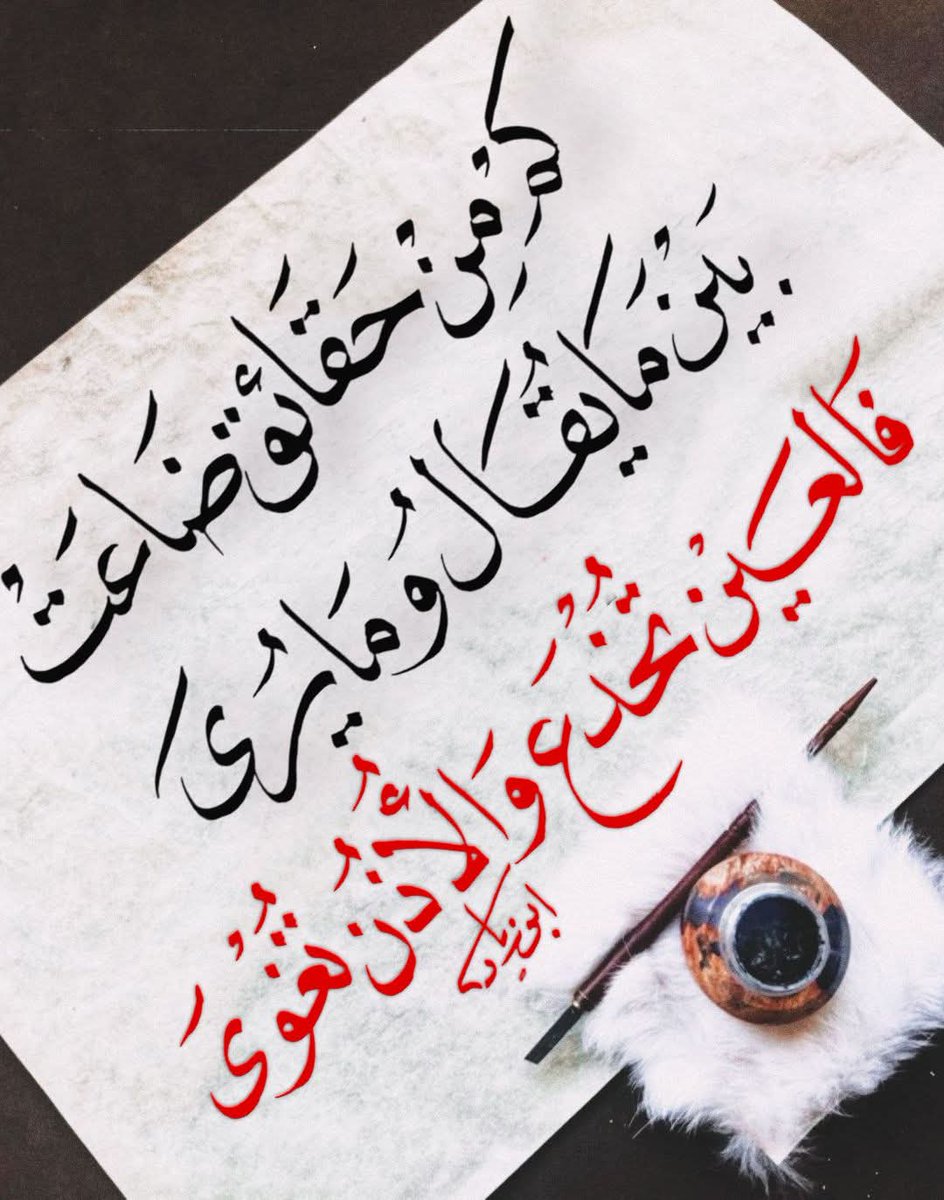 كَمْ مِنْ حَقَائق ضَاعَتْ
بَيْنَ مَا يُقَالُ وَمَا يُرَى
فَالعَيْن تُخْدَعُ وَالأُذُن تُغْوَى